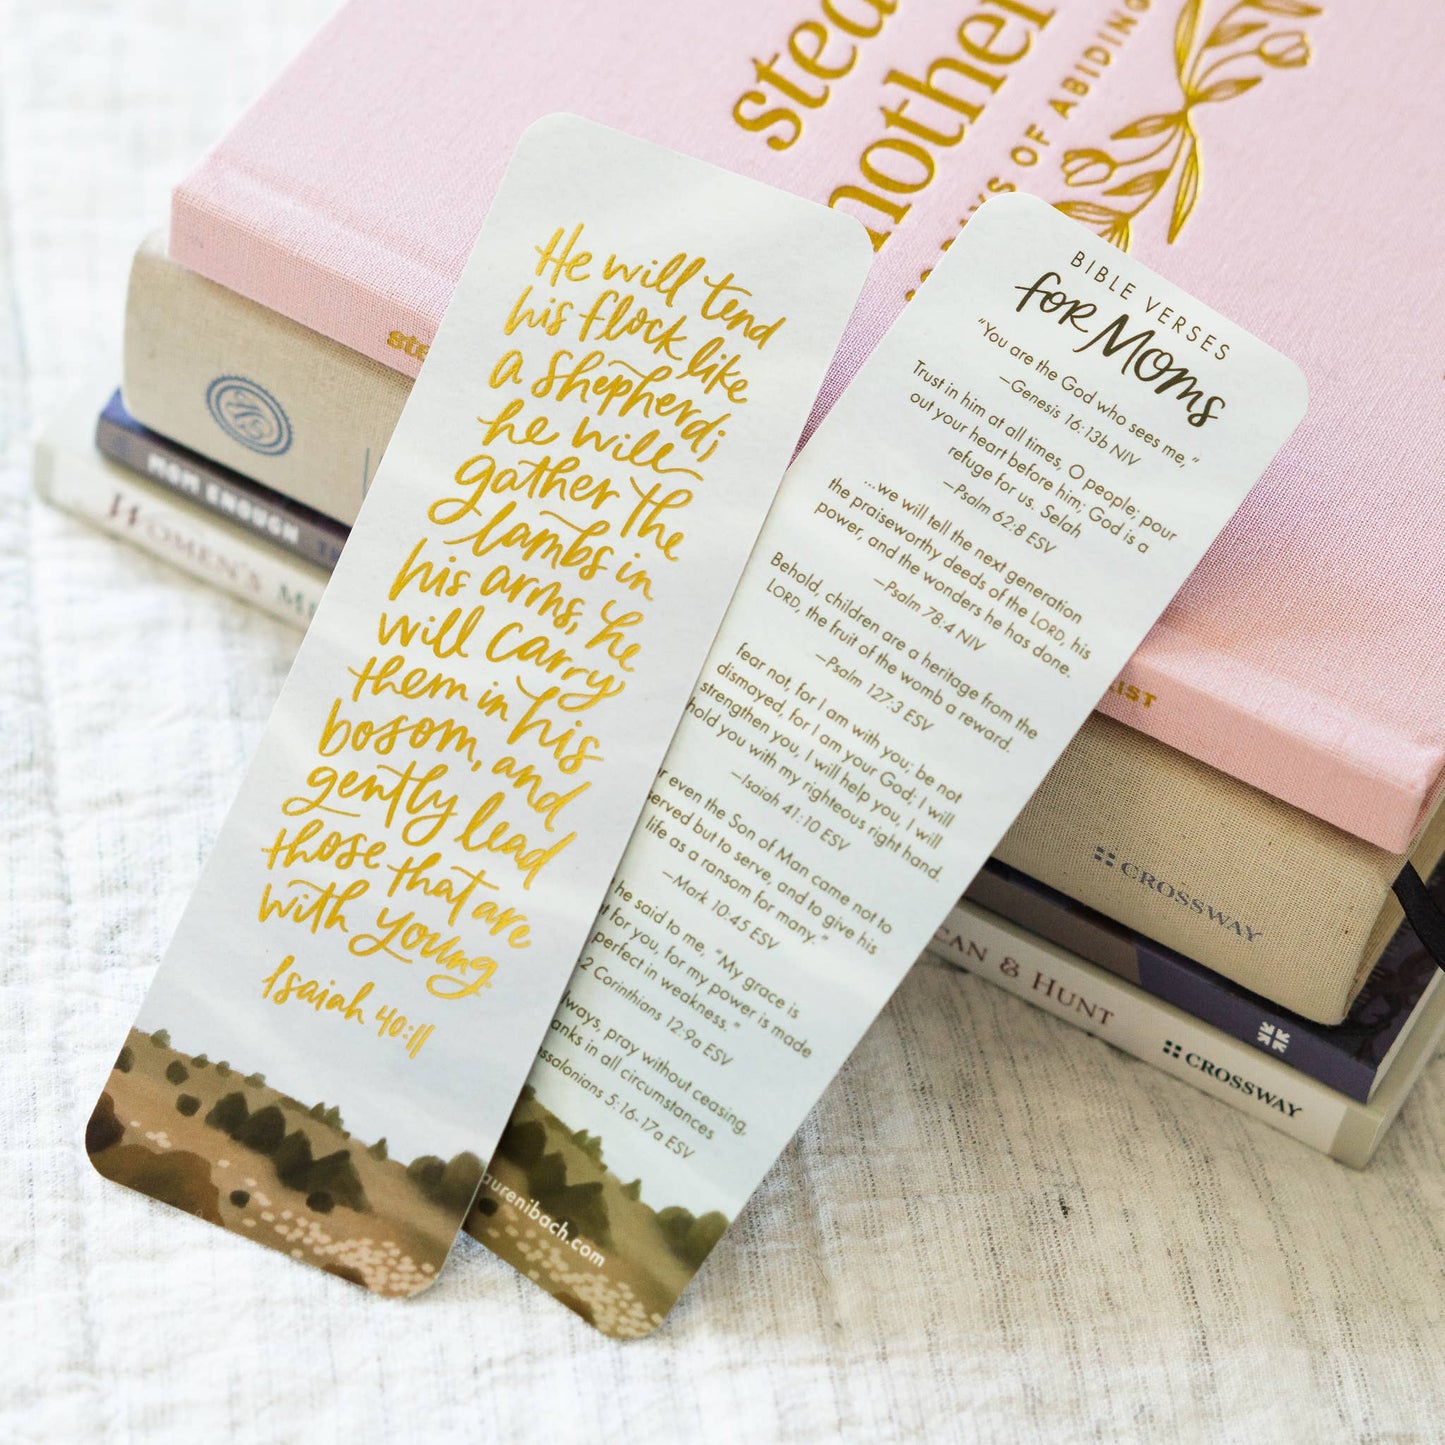 He will tend
his flock like
a shepherd;
he will
gather the
lambs in
his arms; he
will carry
them in his
bosom, and
gently lead
those that are
with young.
Isaiah 40:11
BIBLE VERSES
for Moms
"You are the God who sees me,"
—Genesis 16:13b NIV
Trust in him at all times, O people; pour
out your heart before him; God is a
refuge for us. Selah
—Psalm 62:8 ESV
...we will tell the next generation
the praiseworthy deeds of the LORD, his
power, and the wonders he has done.
—Psalm 78:4 NIV
Behold, children are a heritage from the
LORD, the fruit of the womb a reward.
—Psalm 127:3 ESV
fear not, for I am with you; be not
dismayed, for I am your God; I will
strengthen you, I will help you, I will
hold you with my righteous right hand.
—Isaiah 41:10 ESV
even the Son of Man came not to
served but to serve, and to give his
life as a ransom for many."
—Mark 10:45 ESV
he said to me, "My grace is
for you, for my power is made
perfect in weakness."
2 Corinthians 12:9a ESV
pray without ceasing,
in all circumstances
5:16-17a ESV
laurenibach.com
OF ABIDING
MOM ENOUGH
WOMEN'S
& HUNT
CROSSWAY
CROSSWAY